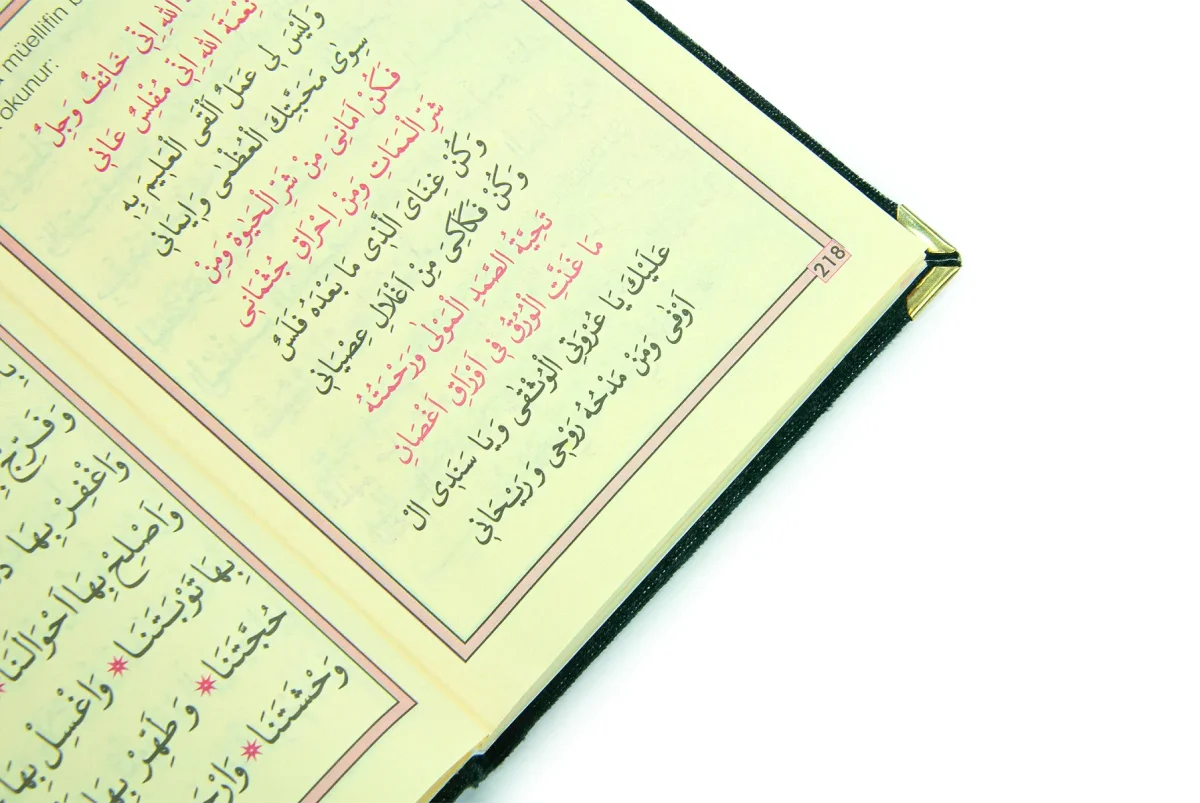 müellifin
okunur:
اللهِ اِنِّي خَائِفٌ وَجِلُ
نِعْمَةَ اللهِ اِنِّي مُفْلِسُ عَانِي
وَلَيْسَ لِي عَمَلٌ اَلْقَى الْعَلِيمَ بِهِ
سِوَى مَحَبَّتِكَ الْعُظْمٰى وَاِيمَانِي
فَكُنْ اَمَانِىَ مِنْ شَرِّ الْحَيٰوةِ وَمِنْ
شَرِّ الْمَمَاتِ وَمِنْ اِحْرَاقِ جُثْمَانِي
وَكُنْ غِنَاىَ الَّذِى مَا بَعْدَهُ فَلَسُ
وَكُنْ فَكَاكِىَ مِنْ اَغْلَالِ عِصْيَانِي
تَحِيَّةُ الصَّمَدِ الْمَوْلٰى وَرَحْمَتُهُ
مَا غَنَّتِ الْوُرْقُ فِي اَوْرَاقِ اَغْصَانِ
عَلَيْكَ يَا عُرْوَتِي الْوُثْقٰى وَيَا سَنَدِى الْ
اَوْفٰى وَمَنْ مَدْحُهُ رَوْحِى وَرَيْحَانِي
218
وَفَرِّجْ
وَاغْفِرْ بِهَا
وَاَصْلِحْ بِهَا اَحْوَالَنَا
بِهَا تَوْبَتَنَا ٭ وَاغْسِلْ بِهَا
حُجَّتَنَا ٭ وَطَهِّرْ بِهَا
وَحْشَتَنَا ٭